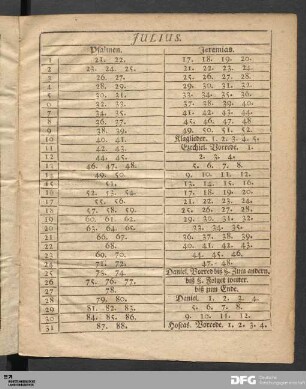 JULIUS.
Psalmen. Jeremias.
1 21. 22. 17. 18. 19. 20.
2 23. 24. 25. 21. 22. 23. 24.
3 26. 27. 25. 26. 27. 28.
4 28. 29. 29. 30. 31. 32.
5 30. 31. 33. 34. 35. 36.
6 32. 33. 37. 38. 39. 40.
7 34. 35. 41. 42. 43. 44.
8 36. 37. 45. 46. 47. 48.
9 38. 39. 49. 50. 51. 52.
10 40. 41. Klaglieder. 1. 2. 3. 4. 5.
11 42. 43. Ezechiel. Vorrede. 1.
12 44. 45. 2. 3. 4.
13 46. 47. 48. 5. 6. 7. 8.
14 49. 50. 9. 10. 11. 12.
15 51. 13. 14. 15. 16.
16 52. 53. 54. 17. 18. 19. 20.
17 55. 56. 21. 22. 23. 24.
18 57. 58. 59. 25. 26. 27. 28.
19 60. 61. 62. 29. 30. 31. 32.
20 63. 64. 65. 33. 34. 35.
21 66. 67. 36. 37. 38. 39.
22 68. 40. 41. 42. 43.
23 69. 70. 44. 45. 46.
24 71. 72. 47. 48.
25 73. 74. Daniel. Vorred bis §. Zum andern.
26 75. 76. 77. bis §. Folget weiter.
27 78. bis zum Ende.
28 79. 80. Daniel. 1. 2. 3. 4.
29 81. 82. 83. 5. 6. 7. 8.
30 84. 85. 86. 9. 10. 11. 12.
31 87. 88. Hoseas. Vorrede. 1. 2. 3. 4.
DFG